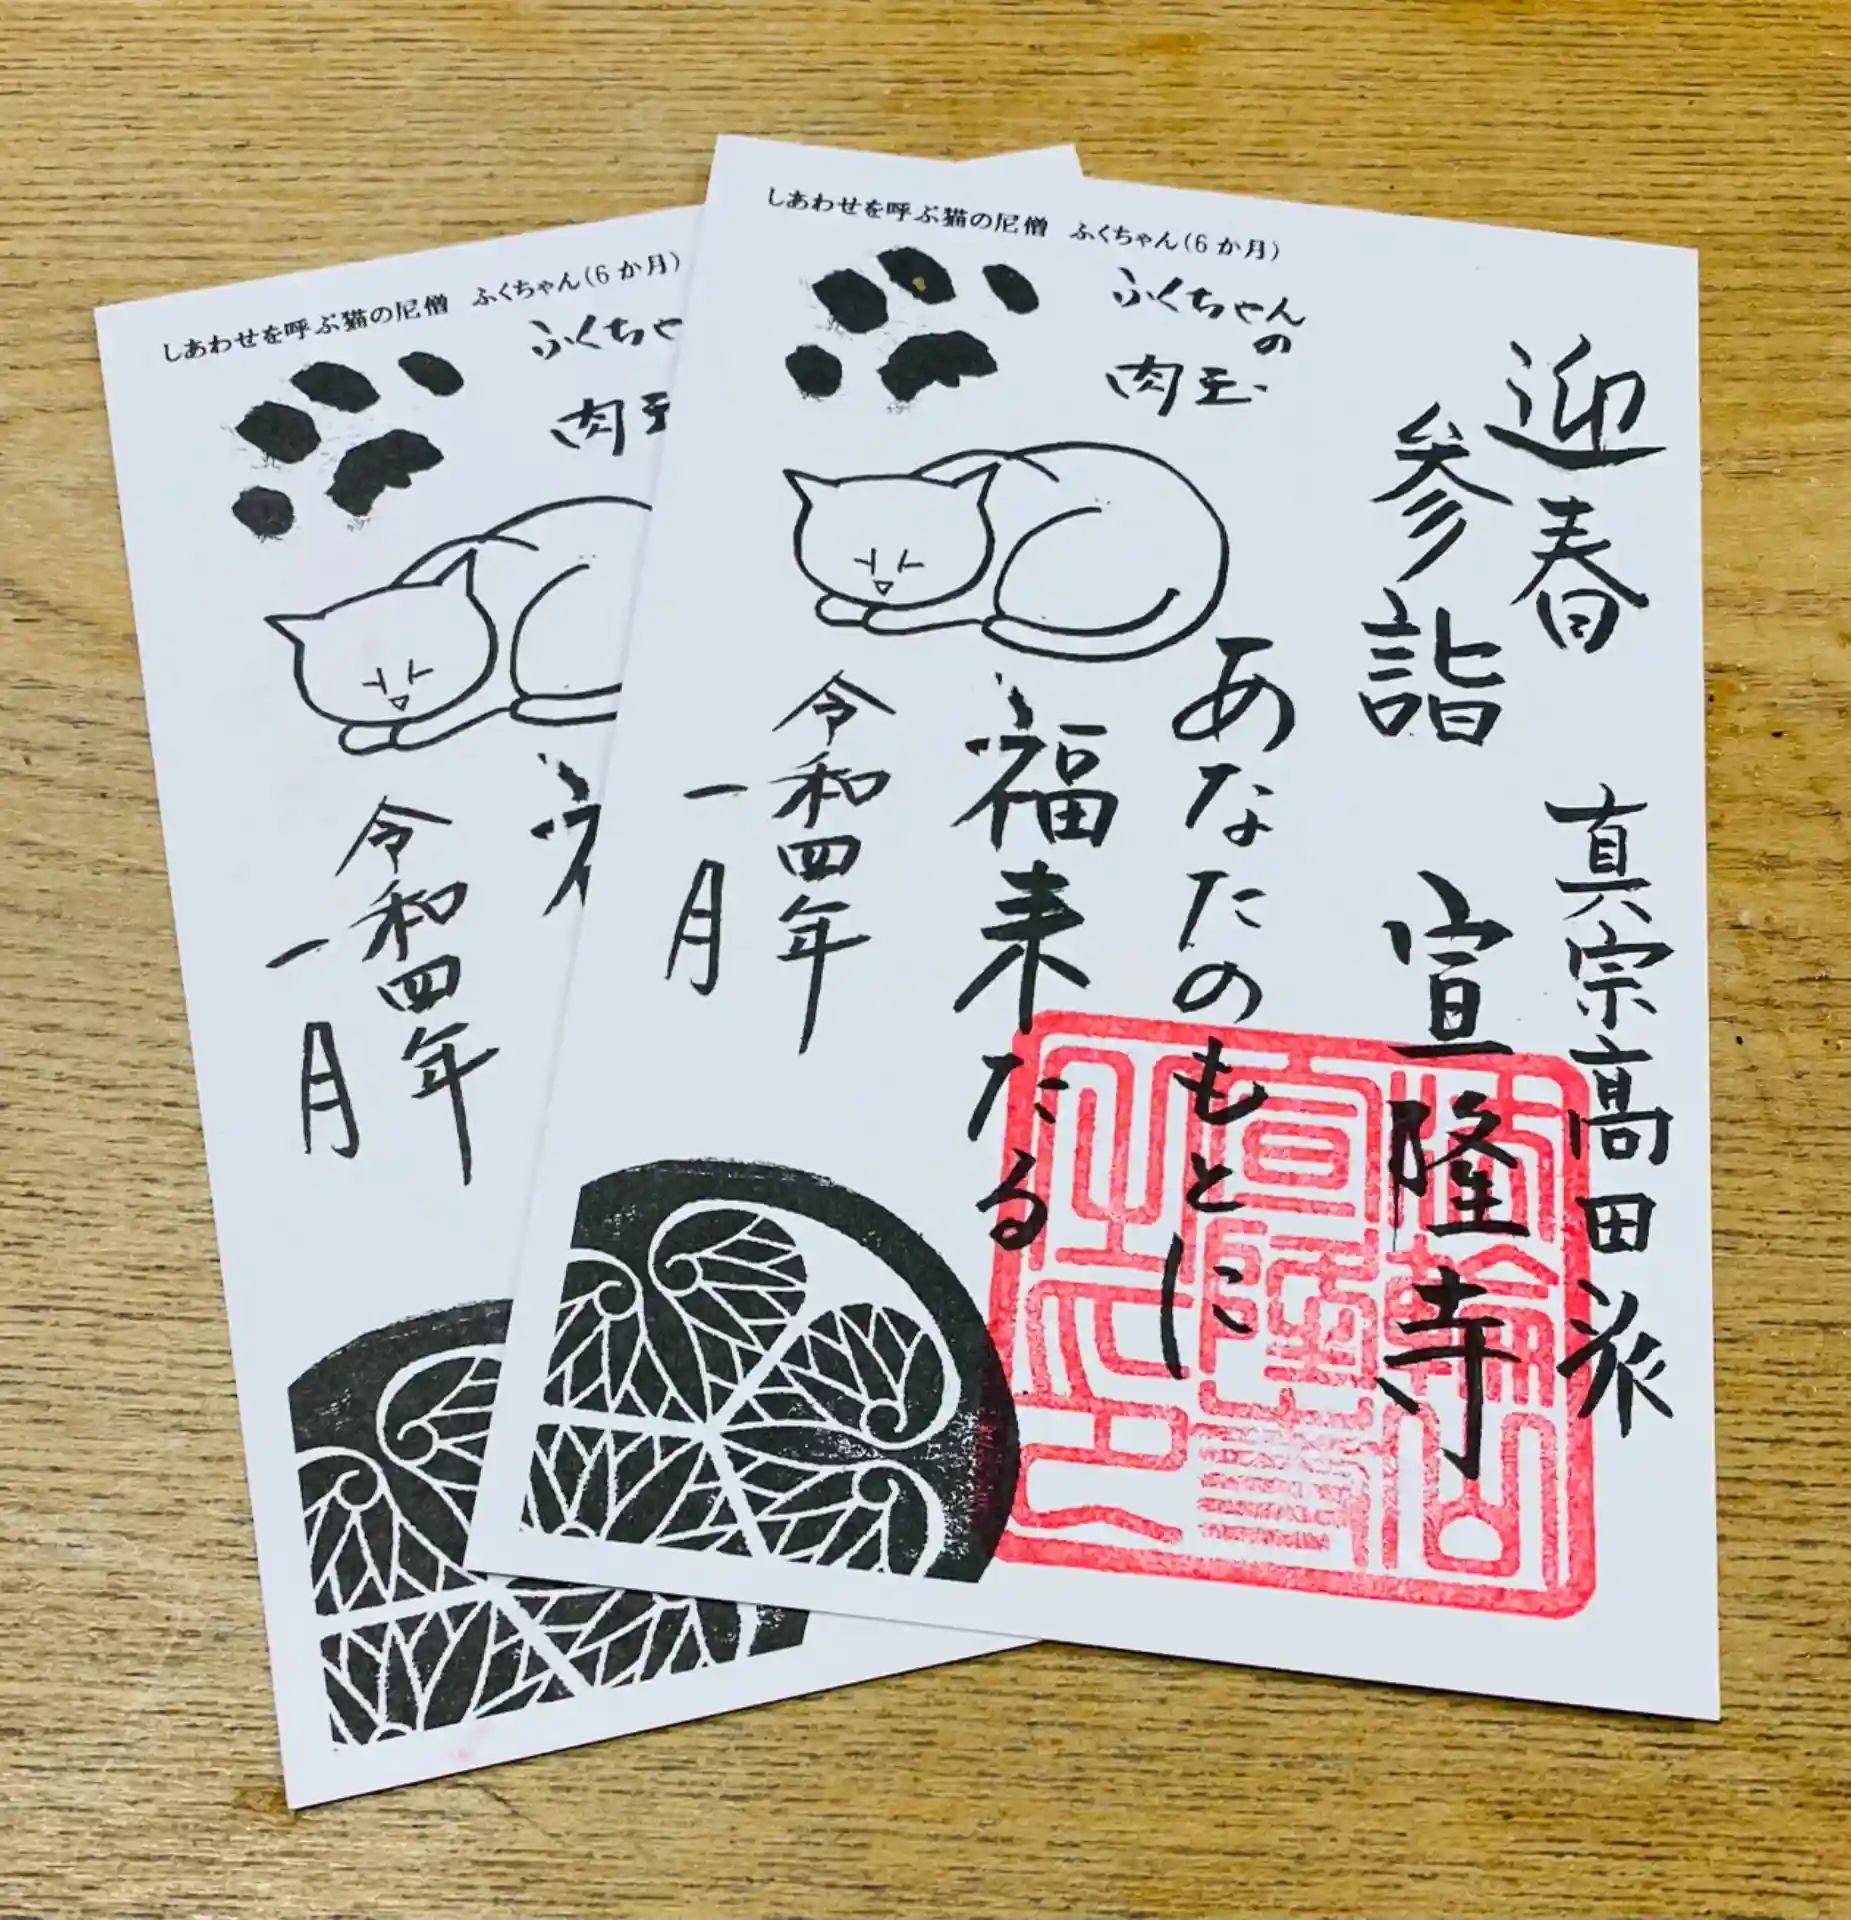 しあわせを呼ぶ猫の尼僧 ふくちゃん(6か月)
ふくちゃんの
肉玉
迎春
参詣
真宗高田派
宣隆寺
あなたのもとに
福来たる
令和四年
一月
しあわせを呼ぶ猫の尼僧 ふくちゃん(6か月)
ふくちゃ
肉玉
令和四年
一月